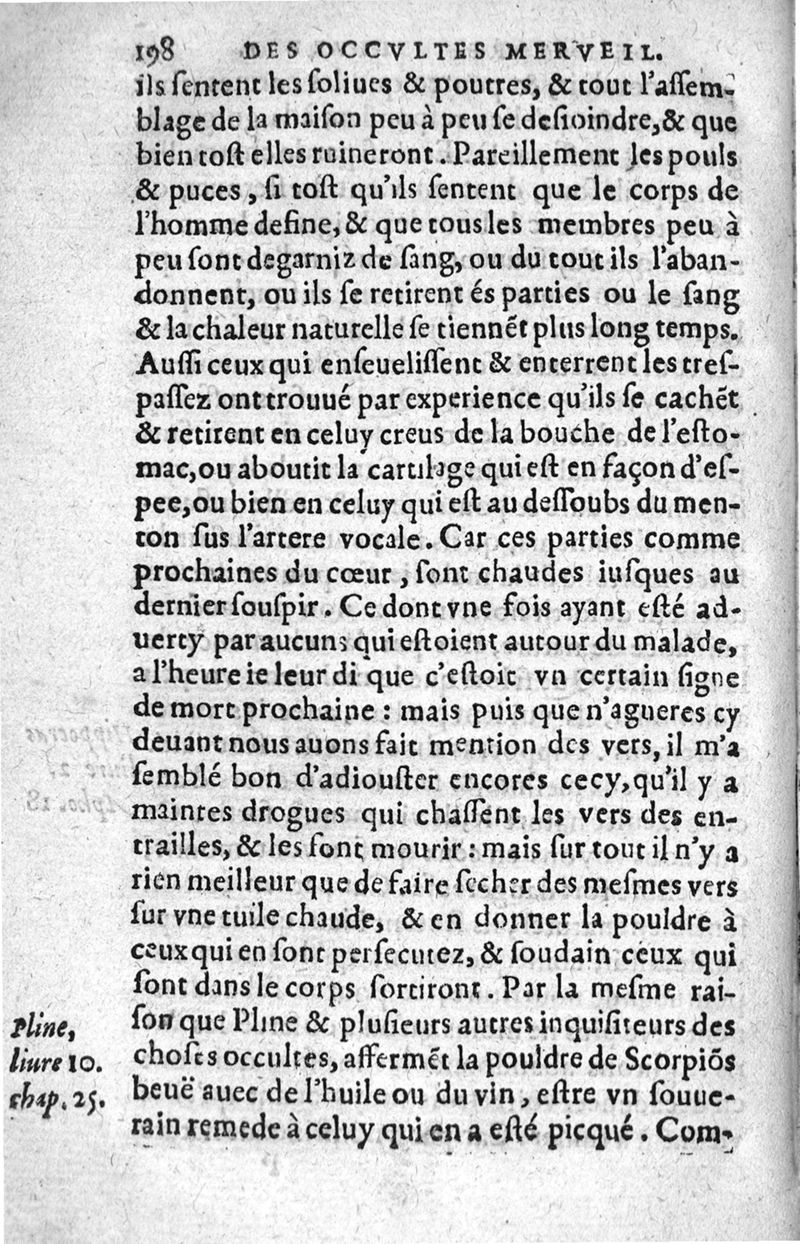 198 DES OCCVLTES MERVEIL.
ils ſentent les ſoliues & poutres, & tout l'aſſem-
blage de la maiſon peu à peu ſe deſioindre,& que
bien toſt elles ruineront. Pareillement les pouls
& puces, ſi toſt qu'ils ſentent que le corps de
l'homme define,& que tous les membres peu à
peu ſont degarniz de ſang, ou du tout ils l'aban-
donnent, ou ils ſe retirent és parties ou le ſang
& la chaleur naturelle ſe tiennẽt plus long temps.
Auſſi ceux qui enſeueliſſent & enterrent les treſ-
paſſez ont trouué par experience qu'ils ſe cachẽt
& retirent en celuy creus de la bouche de l'eſto-
mac,ou aboutit la cartilage qui eſt en façon d'eſ-
pee,ou bien en celuy qui eſt au deſſoubs du men-
ton ſus l'artere vocale. Car ces parties comme
prochaines du cœur, ſont chaudes iuſques au
dernier ſouſpir. Ce dont vne fois ayant eſté ad-
uerty par aucuns qui eſtoient autour du malade,
a l'heure ie leur di que c'eſtoit vn certain ſigne
de mort prochaine : mais puis que n'agueres cy
deuant nous auons fait mention des vers, il m'a
ſemblé bon d'adiouſter encores cecy,qu'il y a
maintes drogues qui chaſſent les vers des en-
trailles, & les font mourir : mais ſur tout il n'y a
rien meilleur que de faire ſecher des meſmes vers
ſur vne tuile chaude, & en donner la pouldre à
ceux qui en ſont perſecutez, & ſoudain ceux qui
ſont dans le corps ſortiront. Par la meſme rai-
ſon que Pline & pluſieurs autres inquiſiteurs des
choſes occultes, affermẽt la pouldre de Scorpiõs
beuë auec de l'huile ou du vin, eſtre vn ſouue-
rain remede à celuy qui en a eſté picqué. Com-
Pline,
liure 10.
chap. 25.